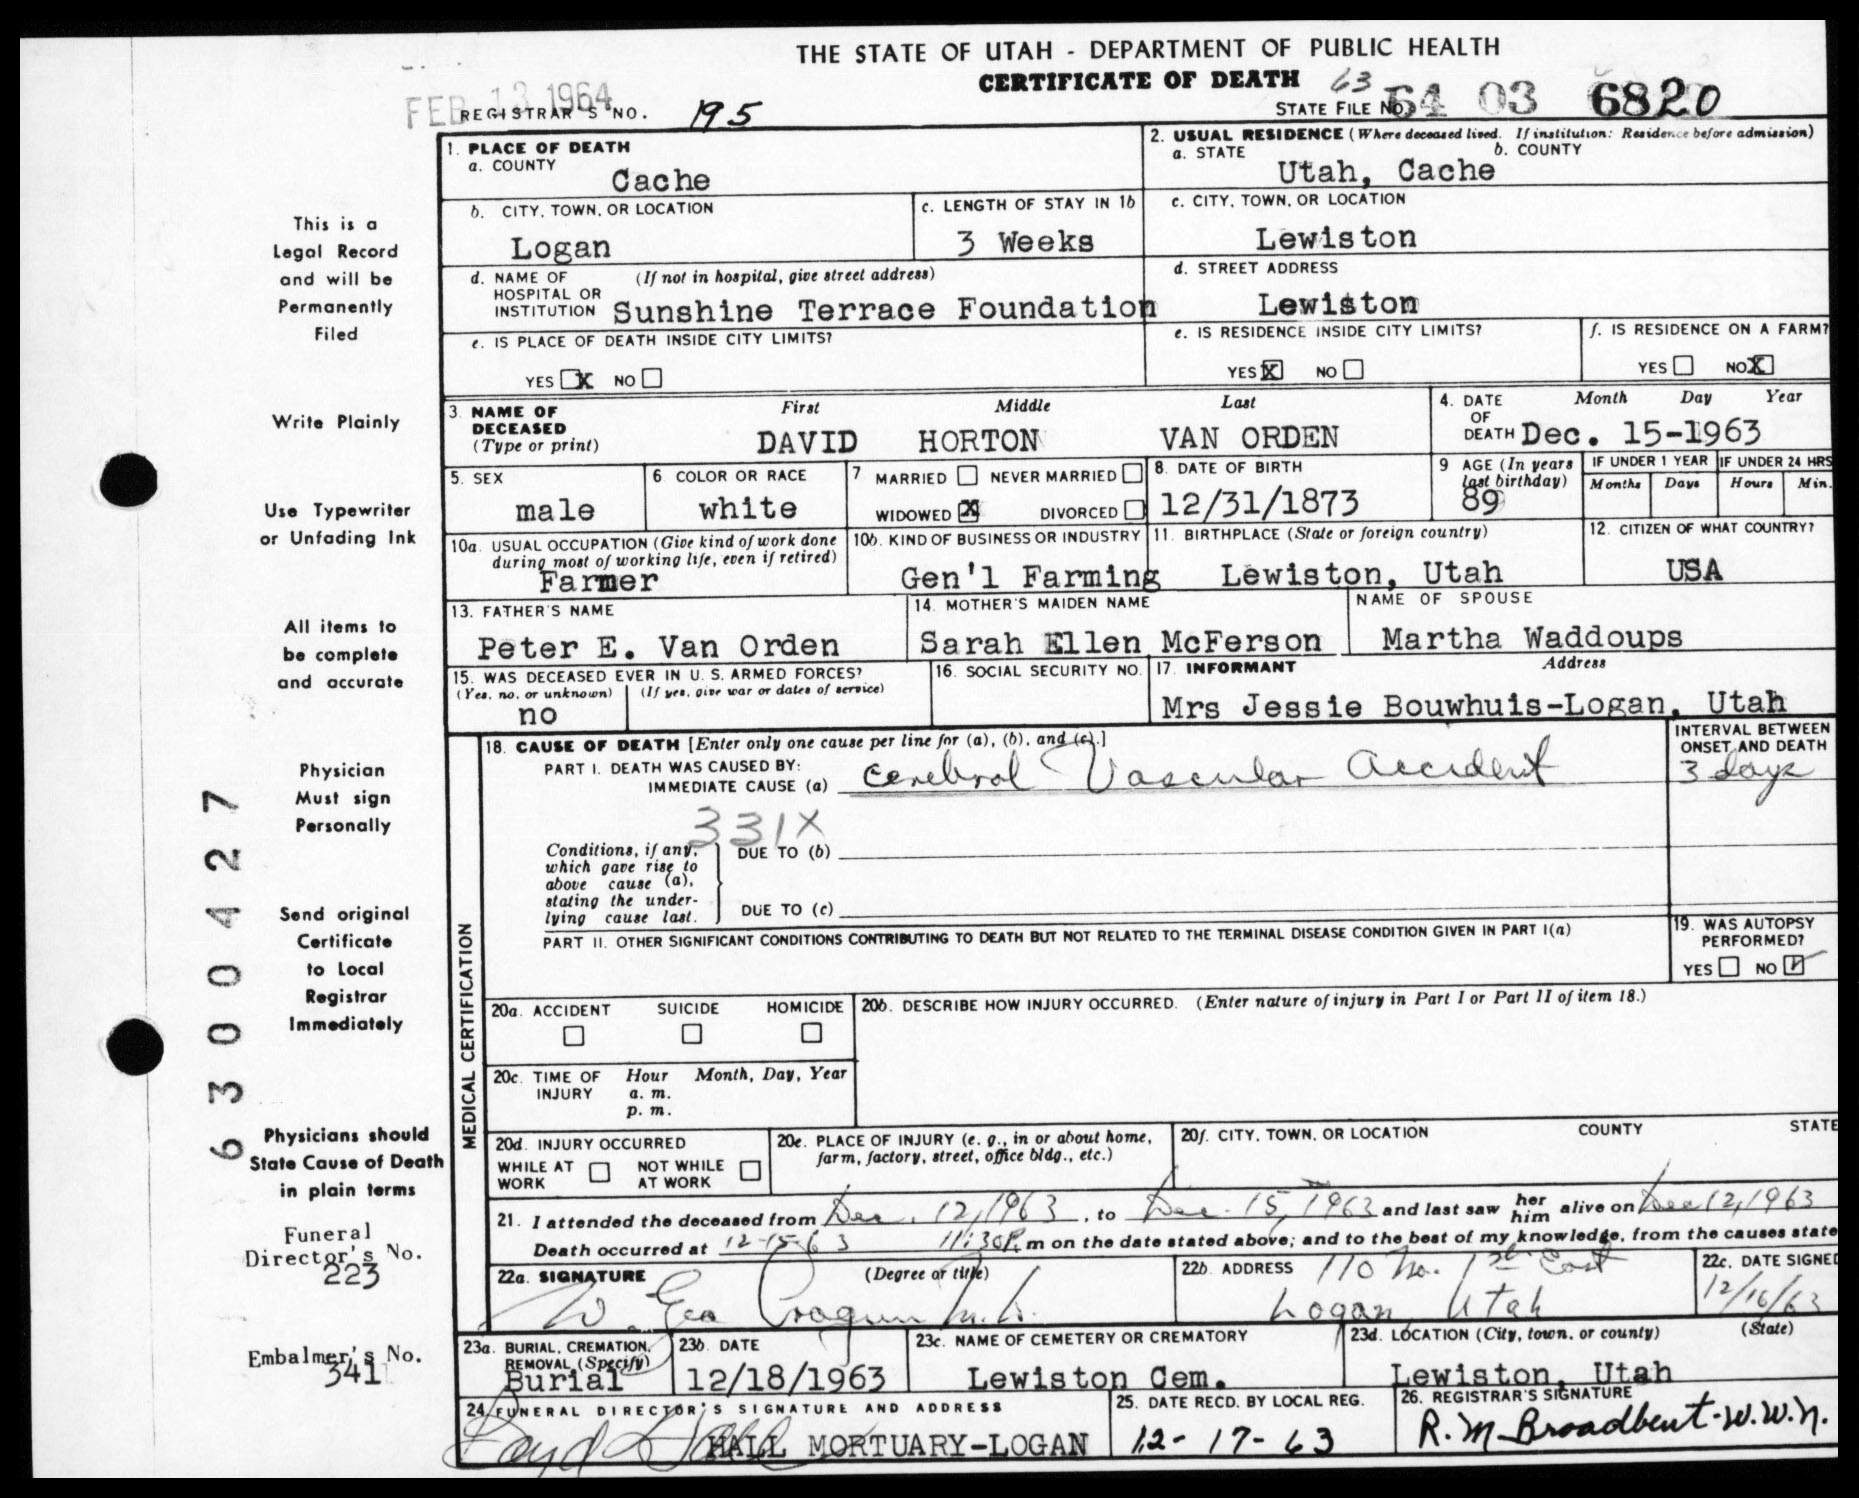 THE STATE OF UTAH - DEPARTMENT OF PUBLIC HEALTH
CERTIFICATE OF DEATH
FEB 13 1964
REGISTRAR'S NO. 195
63
STATE FILE NO. 64 03 6820
1. PLACE OF DEATH
a. COUNTY
Cache
2. USUAL RESIDENCE (Where deceased lived. If institution: Residence before admission)
a. STATE b. COUNTY
Utah, Cache
b. CITY, TOWN, OR LOCATION
Logan
c. LENGTH OF STAY IN 1b
3 Weeks
c. CITY, TOWN, OR LOCATION
Lewiston
d. NAME OF (If not in hospital, give street address)
HOSPITAL OR
INSTITUTION Sunshine Terrace Foundation
d. STREET ADDRESS
Lewiston
e. IS PLACE OF DEATH INSIDE CITY LIMITS?
YES X NO
e. IS RESIDENCE INSIDE CITY LIMITS?
YES X NO
f. IS RESIDENCE ON A FARM?
YES NO X
3. NAME OF DECEASED (Type or print)
First Middle Last
DAVID HORTON VAN ORDEN
4. DATE OF DEATH Month Day Year
Dec. 15-1963
5. SEX
male
6 COLOR OR RACE
white
7 MARRIED NEVER MARRIED
WIDOWED X DIVORCED
8. DATE OF BIRTH
12/31/1873
9 AGE (In years last birthday)
89
IF UNDER 1 YEAR
Months Days
IF UNDER 24 HRS
Hours Min.
10a. USUAL OCCUPATION (Give kind of work done
during most of working life, even if retired)
Farmer
10b. KIND OF BUSINESS OR INDUSTRY
Gen'l Farming
11. BIRTHPLACE (State or foreign country)
Lewiston, Utah
12. CITIZEN OF WHAT COUNTRY?
USA
13. FATHER'S NAME
Peter E. Van Orden
14. MOTHER'S MAIDEN NAME
Sarah Ellen McFerson
NAME OF SPOUSE
Martha Waddoups
15. WAS DECEASED EVER IN U. S. ARMED FORCES?
(Yes, no, or unknown) (If yes, give war or dates of service)
no
16. SOCIAL SECURITY NO.
17. INFORMANT Address
Mrs Jessie Bouwhuis-Logan, Utah
MEDICAL CERTIFICATION
18. CAUSE OF DEATH [Enter only one cause per line for (a), (b), and (c).]
PART I. DEATH WAS CAUSED BY:
IMMEDIATE CAUSE (a) Cerebral Vascular Accident
INTERVAL BETWEEN
ONSET AND DEATH
3 days
331X
Conditions, if any,
which gave rise to
above cause (a),
stating the under-
lying cause last.
DUE TO (b)
DUE TO (c)
PART II. OTHER SIGNIFICANT CONDITIONS CONTRIBUTING TO DEATH BUT NOT RELATED TO THE TERMINAL DISEASE CONDITION GIVEN IN PART I(a)
19. WAS AUTOPSY
PERFORMED?
YES NO ✓
20a. ACCIDENT SUICIDE HOMICIDE
20b. DESCRIBE HOW INJURY OCCURRED. (Enter nature of injury in Part I or Part II of item 18.)
20c. TIME OF INJURY Hour Month, Day, Year
a. m.
p. m.
20d. INJURY OCCURRED
WHILE AT WORK NOT WHILE AT WORK
20e. PLACE OF INJURY (e. g., in or about home,
farm, factory, street, office bldg., etc.)
20f. CITY, TOWN, OR LOCATION COUNTY STATE
21. I attended the deceased from Dec. 12, 1963, to Dec. 15, 1963 and last saw her him alive on Dec 12, 1963
Death occurred at 12-15-63 11:30P. m on the date stated above; and to the best of my knowledge, from the causes state
22a. SIGNATURE (Degree or title)
W. Geo Cragun M.D.
22b. ADDRESS 110 No. 1st East
Logan, Utah
22c. DATE SIGNED
12/16/63
23a. BURIAL, CREMATION,
REMOVAL (Specify)
Burial
23b. DATE
12/18/1963
23c. NAME OF CEMETERY OR CREMATORY
Lewiston Cem.
23d. LOCATION (City, town, or county) (State)
Lewiston, Utah
24 FUNERAL DIRECTOR'S SIGNATURE AND ADDRESS
HALL MORTUARY-LOGAN
25. DATE RECD. BY LOCAL REG.
12-17-63
26. REGISTRAR'S SIGNATURE
R. M Broadbent-W.W.N.
This is a
Legal Record
and will be
Permanently
Filed
Write Plainly
Use Typewriter
or Unfading Ink
All items to
be complete
and accurate
Physician
Must sign
Personally
Send original
Certificate
to Local
Registrar
Immediately
Physicians should
State Cause of Death
in plain terms
Funeral
Director's No.
223
Embalmer's No.
341
6300427